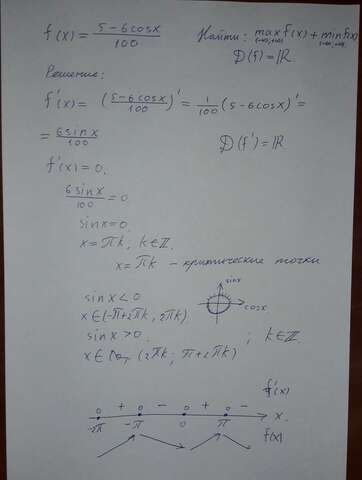 f(x) = (5-6cosx)/100 Найти: max f(x) + min f(x)
(-∞;+∞) (-∞;+∞)
D(f) = ℝ.
Решение:
f'(x) = ((5-6cosx)/100)' = 1/100 (5-6cosx)' =
= 6sinx/100 D(f') = ℝ
f'(x) = 0.
6sinx/100 = 0
sinx = 0.
x = πk, k∈ℤ.
x = πk - критические точки
sinx
cosx
sinx < 0
x∈(-π+2πk, 2πk)
sinx > 0. ; k∈ℤ.
x∈ (2πk; π+2πk)
f'(x)
0 + 0 - 0 + 0 -
-2π -π 0 π x.
f(x)